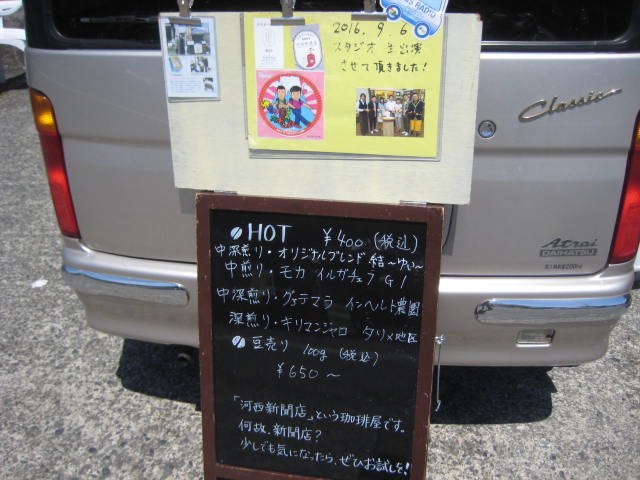 RADIO
2016.9.6
スタジオ生出演
させて頂きました!
Classic
Atrai
DAIHATSU
HOT ¥400 (税込)
中深煎り・オリジナルブレンド 結〜ゆい〜
中煎り・モカ イルガチェフ G1
中深煎り・グァテマラ インヘルト農園
深煎り・キリマンジャロ タリメ地区
豆売り 100g (税込)
¥650〜
「河西新聞店」という珈琲屋です。
何故、新聞店?
少しでも気になったら、ぜひお試しを!